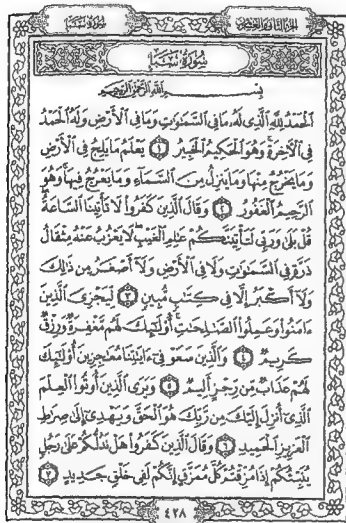 سُورَةُ سَبَإٍ الجزء الثاني والعشرون
سُورَةُ سَبَإٍ
بِسْمِ اللَّهِ الرَّحْمَٰنِ الرَّحِيمِ
الْحَمْدُ لِلَّهِ الَّذِي لَهُ مَا فِي السَّمَاوَاتِ وَمَا فِي الْأَرْضِ وَلَهُ الْحَمْدُ
فِي الْآخِرَةِ وَهُوَ الْحَكِيمُ الْخَبِيرُ ١ يَعْلَمُ مَا يَلِجُ فِي الْأَرْضِ
وَمَا يَخْرُجُ مِنْهَا وَمَا يَنزِلُ مِنَ السَّمَاءِ وَمَا يَعْرُجُ فِيهَا وَهُوَ
الرَّحِيمُ الْغَفُورُ ٢ وَقَالَ الَّذِينَ كَفَرُوا لَا تَأْتِينَا السَّاعَةُ
قُلْ بَلَىٰ وَرَبِّي لَتَأْتِيَنَّكُمْ عَالِمِ الْغَيْبِ لَا يَعْزُبُ عَنْهُ مِثْقَالُ
ذَرَّةٍ فِي السَّمَاوَاتِ وَلَا فِي الْأَرْضِ وَلَا أَصْغَرُ مِن ذَٰلِكَ
وَلَا أَكْبَرُ إِلَّا فِي كِتَابٍ مُّبِينٍ ٣ لِّيَجْزِيَ الَّذِينَ
آمَنُوا وَعَمِلُوا الصَّالِحَاتِ أُولَٰئِكَ لَهُم مَّغْفِرَةٌ وَرِزْقٌ
كَرِيمٌ ٤ وَالَّذِينَ سَعَوْ فِي آيَاتِنَا مُعَاجِزِينَ أُولَٰئِكَ
لَهُمْ عَذَابٌ مِّن رِّجْزٍ أَلِيمٌ ٥ وَيَرَى الَّذِينَ أُوتُوا الْعِلْمَ
الَّذِي أُنزِلَ إِلَيْكَ مِن رَّبِّكَ هُوَ الْحَقَّ وَيَهْدِي إِلَىٰ صِرَاطِ
الْعَزِيزِ الْحَمِيدِ ٦ وَقَالَ الَّذِينَ كَفَرُوا هَلْ نَدُلُّكُمْ عَلَىٰ رَجُلٍ
يُنَبِّئُكُمْ إِذَا مُزِّقْتُمْ كُلَّ مُمَزَّقٍ إِنَّكُمْ لَفِي خَلْقٍ جَدِيدٍ ٧
٤٢٨